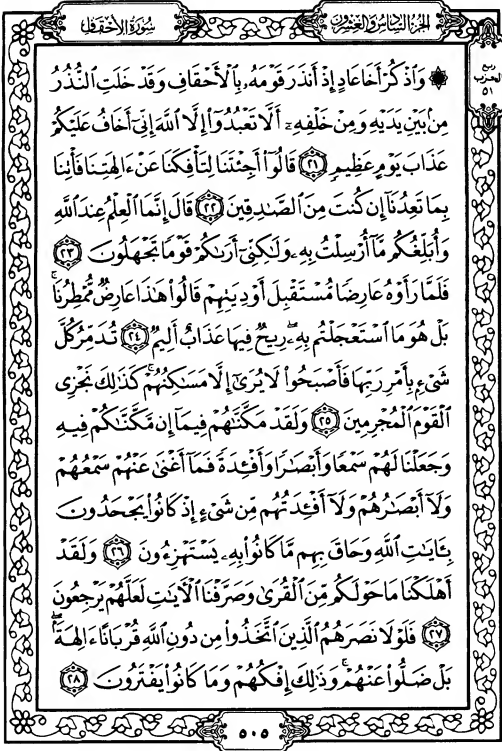 سورة الأحقاف
الجزء السادس والعشرون
ربع
الحزب
٥١
۞ وَٱذْكُرْ أَخَا عَادٍ إِذْ أَنذَرَ قَوْمَهُۥ بِٱلْأَحْقَافِ وَقَدْ خَلَتِ ٱلنُّذُرُ
مِنۢ بَيْنِ يَدَيْهِ وَمِنْ خَلْفِهِۦٓ أَلَّا تَعْبُدُوٓا۟ إِلَّا ٱللَّهَ إِنِّىٓ أَخَافُ عَلَيْكُمْ
عَذَابَ يَوْمٍ عَظِيمٍ ٢١ قَالُوٓا۟ أَجِئْتَنَا لِتَأْفِكَنَا عَنْ ءَالِهَتِنَا فَأْتِنَا
بِمَا تَعِدُنَآ إِن كُنتَ مِنَ ٱلصَّـٰدِقِينَ ٢٢ قَالَ إِنَّمَا ٱلْعِلْمُ عِندَ ٱللَّهِ
وَأُبَلِّغُكُم مَّآ أُرْسِلْتُ بِهِۦ وَلَـٰكِنِّىٓ أَرَىٰكُمْ قَوْمًا تَجْهَلُونَ ٢٣
فَلَمَّا رَأَوْهُ عَارِضًا مُّسْتَقْبِلَ أَوْدِيَتِهِمْ قَالُوا۟ هَـٰذَا عَارِضٌ مُّمْطِرُنَا ۚ
بَلْ هُوَ مَا ٱسْتَعْجَلْتُم بِهِۦ ۖ رِيحٌ فِيهَا عَذَابٌ أَلِيمٌ ٢٤ تُدَمِّرُ كُلَّ
شَىْءٍۭ بِأَمْرِ رَبِّهَا فَأَصْبَحُوا۟ لَا يُرَىٰٓ إِلَّا مَسَـٰكِنُهُمْ ۚ كَذَٰلِكَ نَجْزِى
ٱلْقَوْمَ ٱلْمُجْرِمِينَ ٢٥ وَلَقَدْ مَكَّنَّـٰهُمْ فِيمَآ إِن مَّكَّنَّـٰكُمْ فِيهِ
وَجَعَلْنَا لَهُمْ سَمْعًا وَأَبْصَـٰرًا وَأَفْـِٔدَةً فَمَآ أَغْنَىٰ عَنْهُمْ سَمْعُهُمْ
وَلَآ أَبْصَـٰرُهُمْ وَلَآ أَفْـِٔدَتُهُم مِّن شَىْءٍ إِذْ كَانُوا۟ يَجْحَدُونَ
بِـَٔايَـٰتِ ٱللَّهِ وَحَاقَ بِهِم مَّا كَانُوا۟ بِهِۦ يَسْتَهْزِءُونَ ٢٦ وَلَقَدْ
أَهْلَكْنَا مَا حَوْلَكُم مِّنَ ٱلْقُرَىٰ وَصَرَّفْنَا ٱلْـَٔايَـٰتِ لَعَلَّهُمْ يَرْجِعُونَ
٢٧ فَلَوْلَا نَصَرَهُمُ ٱلَّذِينَ ٱتَّخَذُوا۟ مِن دُونِ ٱللَّهِ قُرْبَانًا ءَالِهَةًۢ ۖ
بَلْ ضَلُّوا۟ عَنْهُمْ ۚ وَذَٰلِكَ إِفْكُهُمْ وَمَا كَانُوا۟ يَفْتَرُونَ ٢٨
٥٠٥